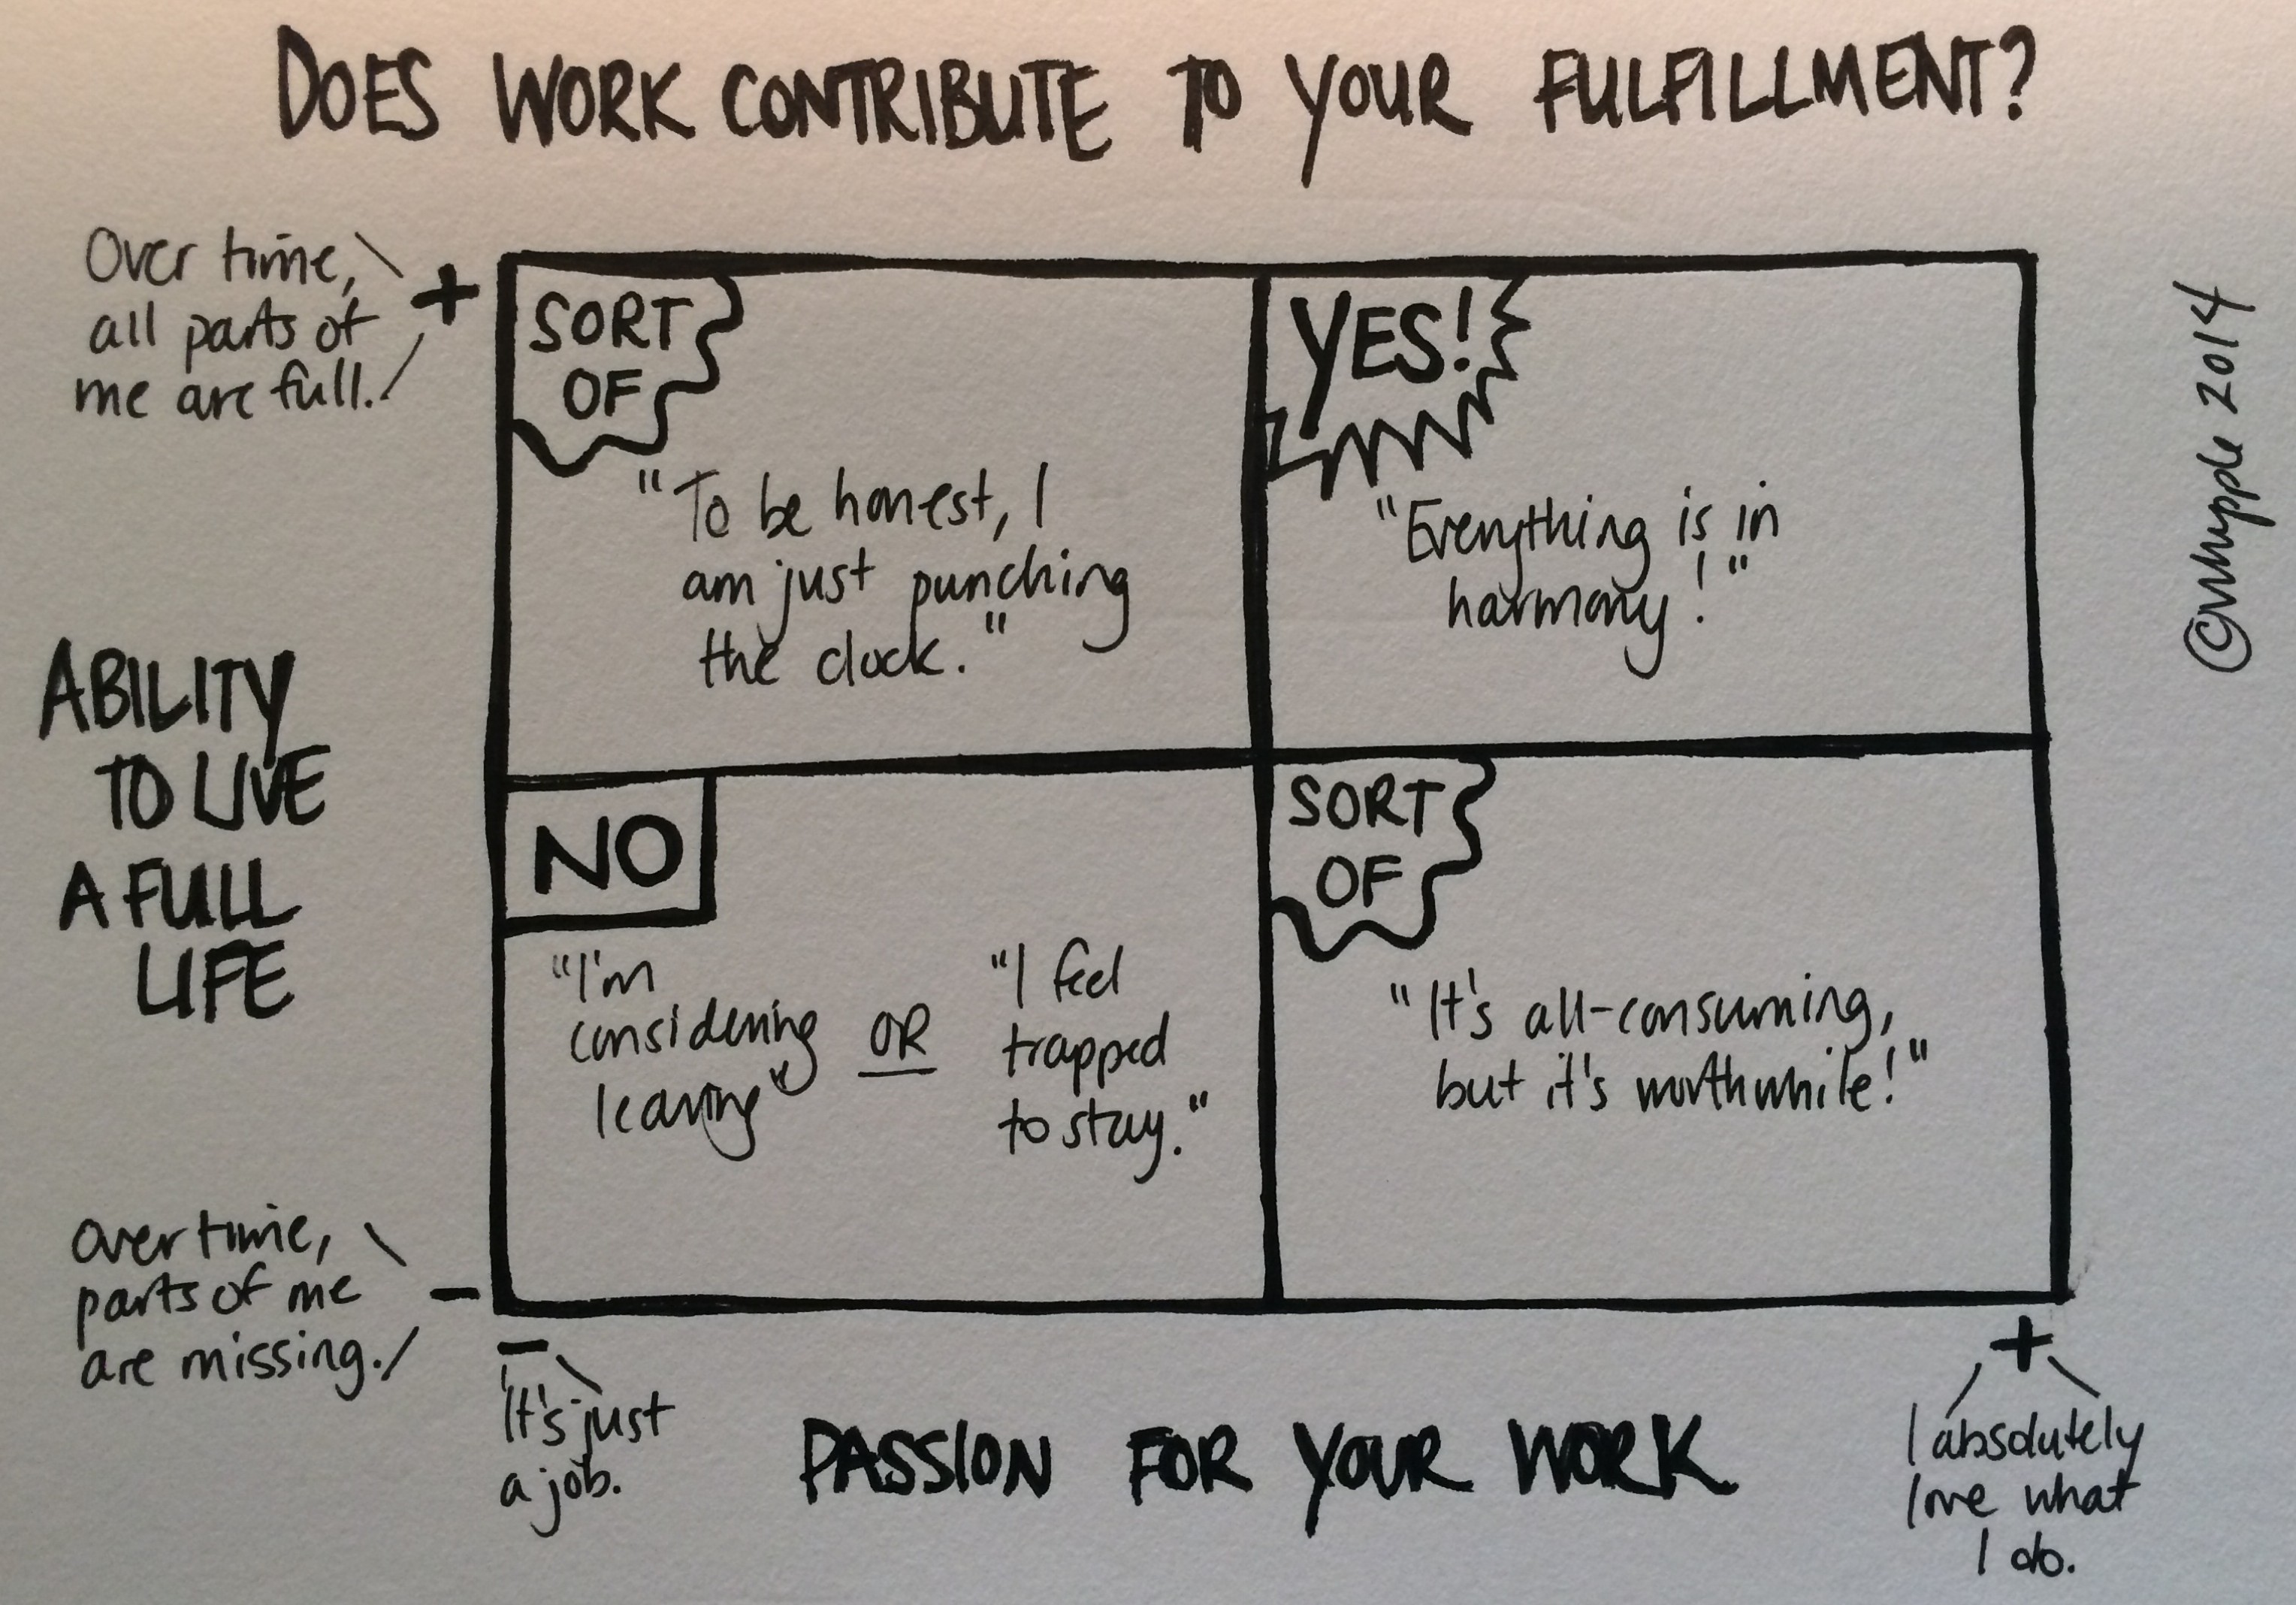 DOES WORK CONTRIBUTE TO YOUR FULFILLMENT?
Over time,
all parts of
me are full.
+
SORT
OF
"To be honest, I
am just punching
the clock."
YES!
"Everything is in
harmony!"
ABILITY
TO LIVE
A FULL
LIFE
NO
"I'm
considering
leaving"
OR
"I feel
trapped
to stay."
SORT
OF
"It's all-consuming,
but it's worthwhile!"
Over time,
parts of me
are missing.
-
-
It's just
a job.
PASSION FOR YOUR WORK
+
I absolutely
love what
I do.
2014